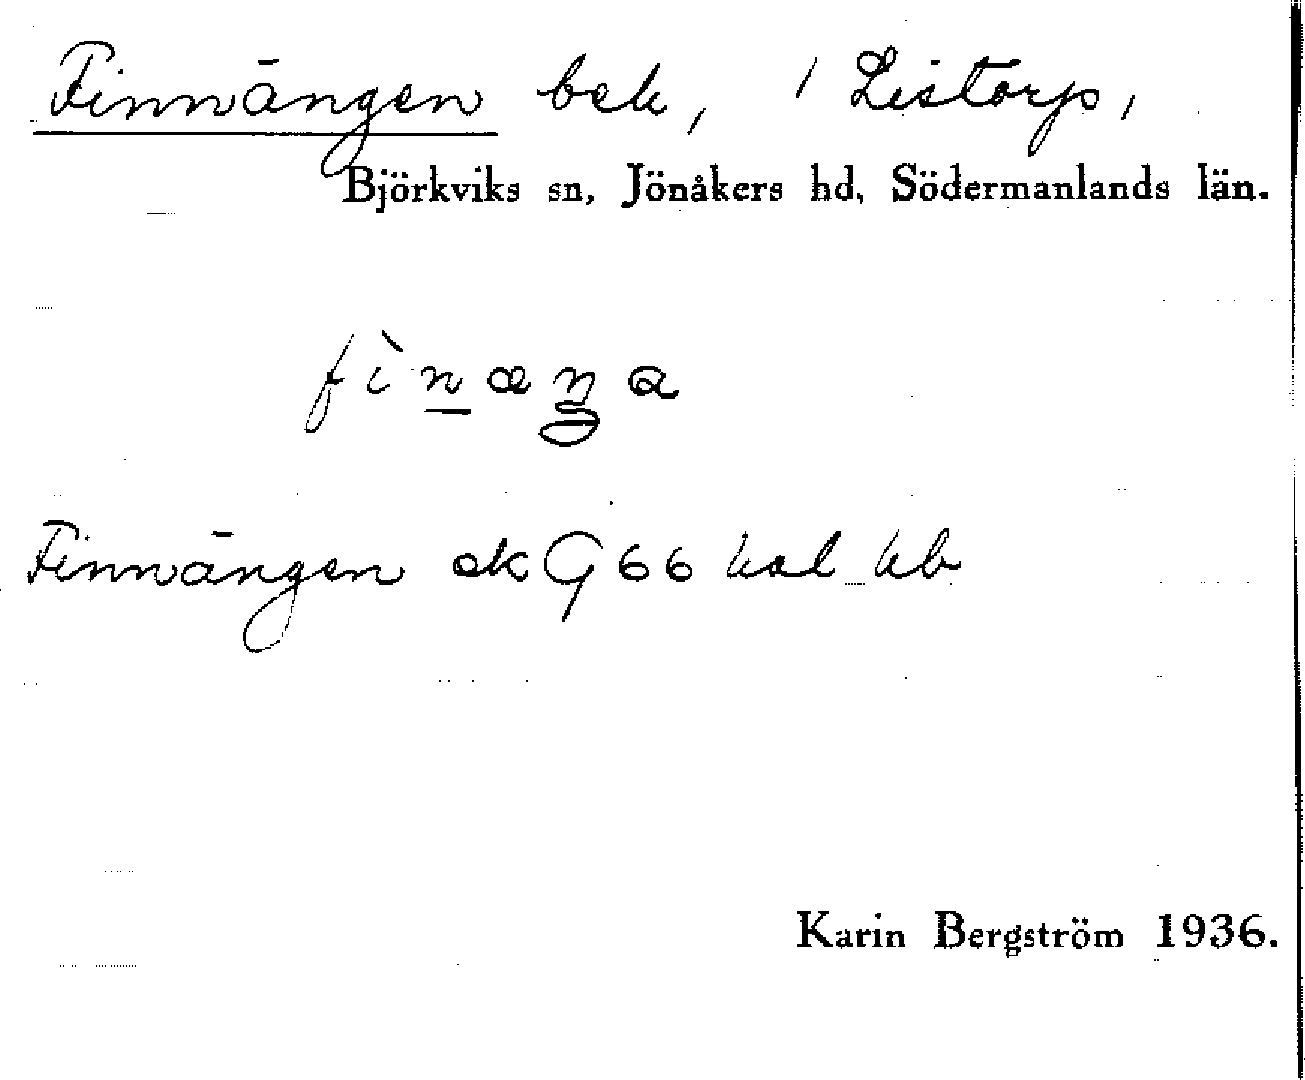 Finnängen beb, i Listorp,
Björkviks sn, Jönåkers hd, Södermanlands län.
fìnæŋa
Finnängen ek G66 bal hb
Karin Bergström 1936.